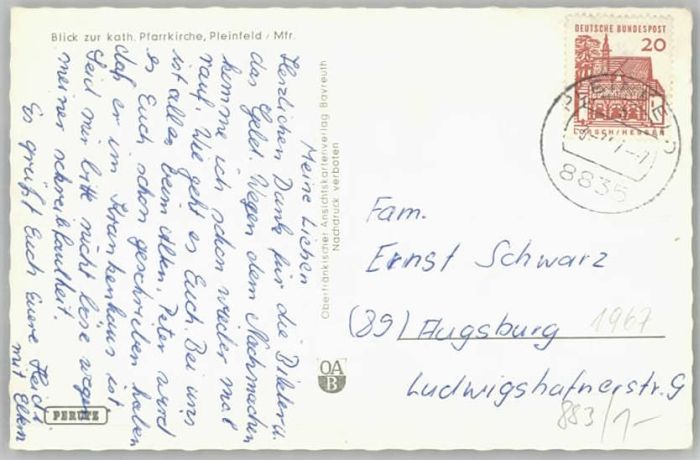 Blick zur kath. Pfarrkirche, Pleinfeld / Mfr.
Meine Lieben
Herzlichen Dank für die Bilder u.
das Geld. Wegen dem Nachmachen
komme ich schon wieder mal
rauf. Wie geht es Euch. Bei uns
ist alles beim Alten. Peter werd
es Euch schon geschrieben haben
daß er im Krankenhaus ist.
Seid mir bitte nicht böse wegen
meiner Schreibfaulheit.
Es grüßt Euch Euere Heidi
mit Eltern
PERUTZ
Oberfränkischer Ansichtskartenverlag Bayreuth
Nachdruck verboten
OA
B
DEUTSCHE BUNDESPOST
20
LORSCH/HESSEN
8835
Fam.
Ernst Schwarz
(89) Augsburg 1967
Ludwigshafnerstr. 9
883/1-